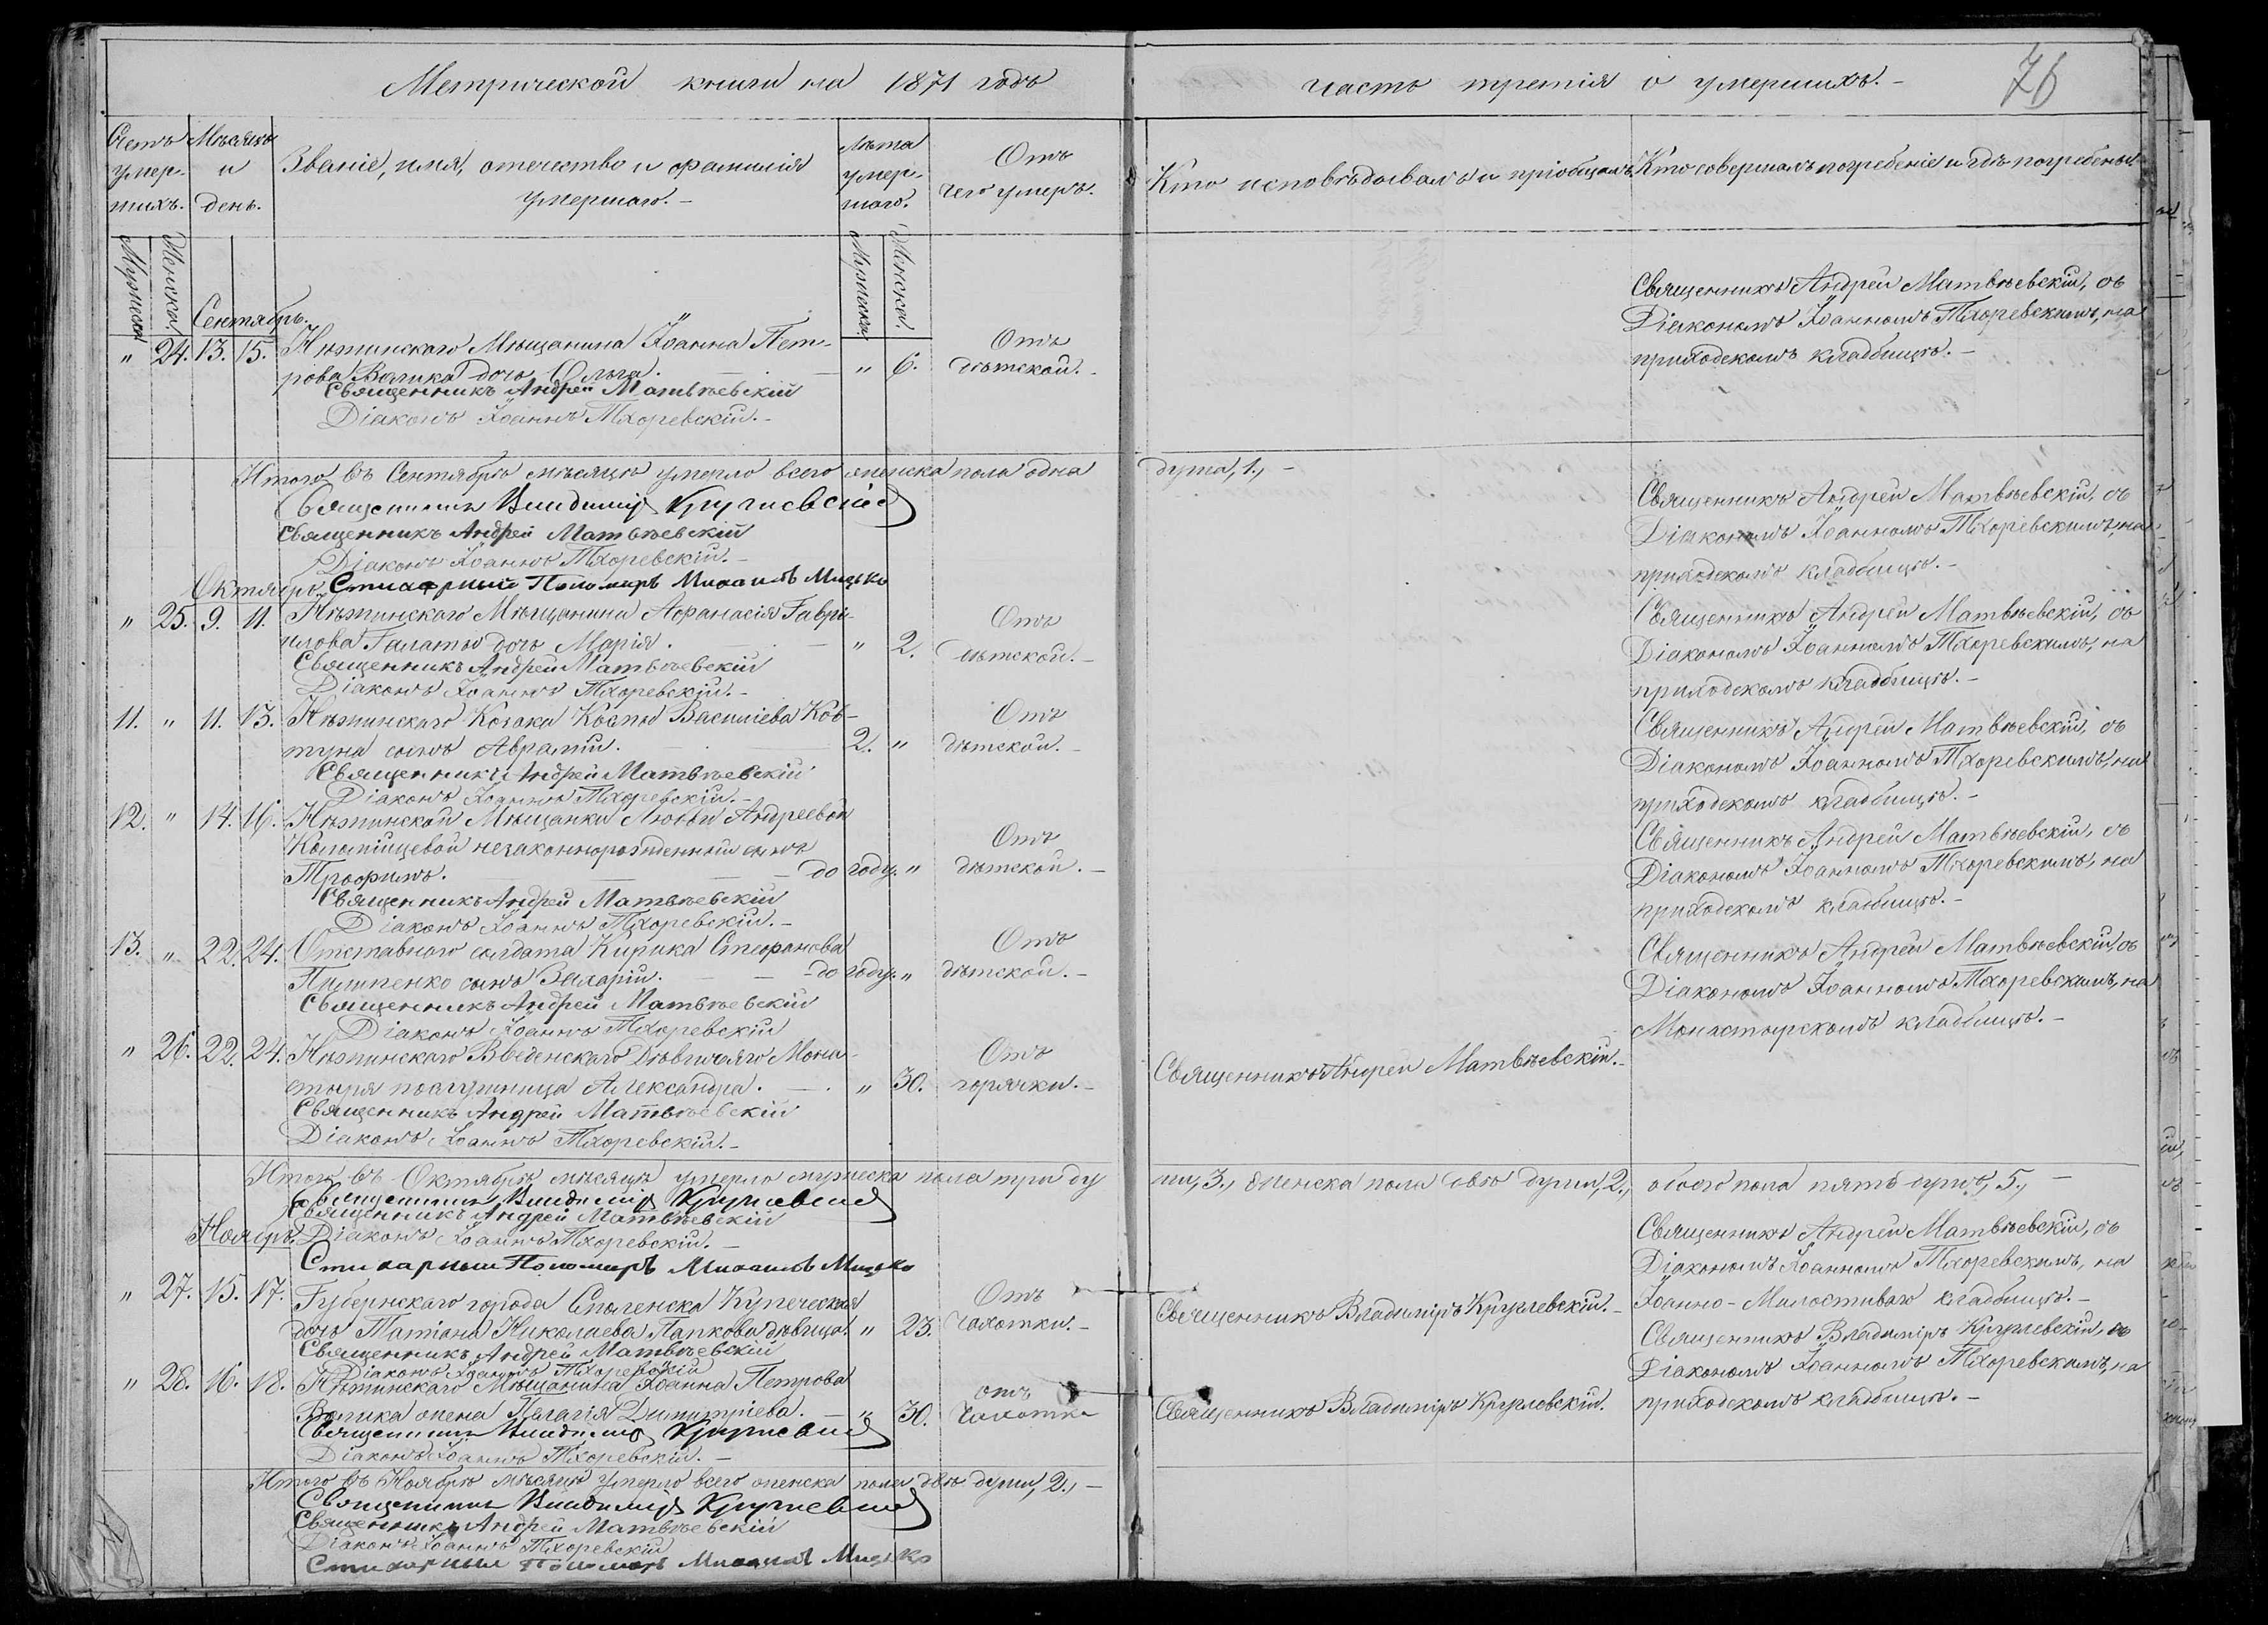 Метрической книги на 1871 годъ
часть третія о умершихъ.-
76
Счетъ умер-шихъ.
Мѣсяцъ и день.
Званіе, имя, отечество и фамилія
умершаго.-
Лѣта умер-шаго.
Отъ
чего умеръ.
Кто исповѣдывалъ и пріобщалъ.
Кто совершалъ погребеніе и гдѣ погребены.
Мужска. Женска.
Мужска. Женска.
Сентябрь.
" 24. 13. 15. Нѣжинскаго Мѣщанина Іоанна Пет- Отъ
рова Волика дочь Ольга. " 6. дѣтской.-
Священникъ Андрей Матвѣевскій
Діаконъ Іоаннъ Тхоревскій.-
Священникъ Андрей Матвѣевскій, съ
Діакономъ Іоанномъ Тхоревскимъ, на
приходскомъ кладбищѣ.-
Итого въ Сентябрѣ мѣсяцѣ умерло всего женска пола одна душа, 1., -
Священникъ Владиміръ Круглевскій
Священникъ Андрей Матвѣевскій
Діаконъ Іоаннъ Тхоревскій.-
Стихарный Пономарь Михаилъ
Священникъ Андрей Матвѣевскій, съ
Діакономъ Іоанномъ Тхоревскимъ, на
приходскомъ кладбищѣ.-
Октябрь.
" 25. 9. 11. Нѣжинскаго Мѣщанина Аѳанасія Гаврі- Отъ
илова дочь Марія. " 2. дѣтской.-
Священникъ Андрей Матвѣевскій
Діаконъ Іоаннъ Тхоревскій.-
Священникъ Андрей Матвѣевскій, съ
Діакономъ Іоанномъ Тхоревскимъ, на
приходскомъ кладбищѣ.-
11. " 11. 13. Нѣжинскаго Козака Василіева Ков- Отъ
туна сынъ Аврамій. 2. " дѣтской.-
Священникъ Андрей Матвѣевскій
Діаконъ Іоаннъ Тхоревскій.-
Священникъ Андрей Матвѣевскій, съ
Діакономъ Іоанномъ Тхоревскимъ, на
приходскомъ кладбищѣ.-
12. " 14. 16. Нѣжинской Мѣщанки Любви Андреевой
Коломійцевой незаконнорожденный сынъ Отъ
Трофимъ. - до году. " дѣтской.-
Священникъ Андрей Матвѣевскій
Діаконъ Іоаннъ Тхоревскій.-
Священникъ Андрей Матвѣевскій, съ
Діакономъ Іоанномъ Тхоревскимъ, на
приходскомъ кладбищѣ.-
13. " 22. 24. Отставнаго солдата Кирика Стефанова Отъ
Пилипенко сынъ Захарій. - до году. " дѣтской.-
Священникъ Андрей Матвѣевскій
Діаконъ Іоаннъ Тхоревскій
Священникъ Андрей Матвѣевскій, съ
Діакономъ Іоанномъ Тхоревскимъ, на
Монастырскомъ кладбищѣ.-
" 26. 22. 24. Нѣжинскаго Введенскаго Дѣвичьяго Мона- Отъ
стыря послушница Александра. " 30. горячки.-
Священникъ Андрей Матвѣевскій.-
Священникъ Андрей Матвѣевскій
Діаконъ Іоаннъ Тхоревскій.-
Итого въ Октябрѣ мѣсяцѣ умерло мужеска пола три ду ши, 3., женска пола двѣ души, 2., обоего пола пять душъ, 5., -
Священникъ Владиміръ Круглевскій
Священникъ Андрей Матвѣевскій
Ноябрь. Діаконъ Іоаннъ Тхоревскій.-
Стихарный Пономарь Михаилъ
Священникъ Андрей Матвѣевскій, съ
Діакономъ Іоанномъ Тхоревскимъ, на
Іоанно-Милостивомъ кладбищѣ.-
" 27. 15. 17. Губернскаго города Смоленска Купеческая Отъ
дочь Татіана Николаева Папкова дѣвица. " 23. Чахотки.-
Священникъ Владиміръ Круглевскій.-
Священникъ Андрей Матвѣевскій
Діаконъ Іоаннъ Тхоревскій
Священникъ Владиміръ Круглевскій, съ
Діакономъ Іоанномъ Тхоревскимъ, на
приходскомъ кладбищѣ.-
" 28. 16. 18. Нѣжинскаго Мѣщанина Іоанна Петрова отъ
Волика жена Пелагія Димитріева. - " 30. Чахотки
Священникъ Владиміръ Круглевскій.
Священникъ Владиміръ Круглевскій
Діаконъ Іоаннъ Тхоревскій.-
Итого въ Ноябрѣ мѣсяцѣ умерло всего женска пола двѣ души, 2., -
Священникъ Владиміръ Круглевскій
Священникъ Андрей Матвѣевскій
Діаконъ Іоаннъ Тхоревскій
Стихарный Пономарь Михаилъ